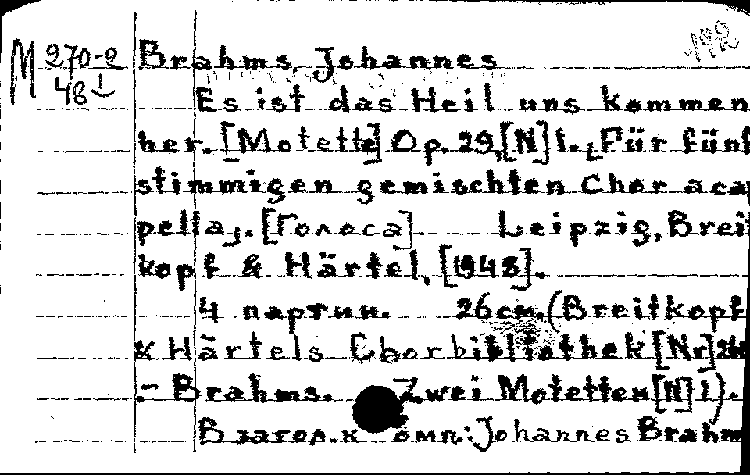 192
М 270-2
48↓
Brahms, Johannes
Es ist das Heil uns kommen
her. [Motette] Op. 29, [N] 1. „Für fünf
stimmigen gemischten Chor aca
pella„. [Голоса]. Leipzig, Breit
kopf & Härtel, [1948].
4 партии. 26 см. (Breitkopf
& Härtels Chorbibliothek [Nr]
- Brahms. Zwei Motetten [N] 1).
В загол. к омп.: Johannes Brahm